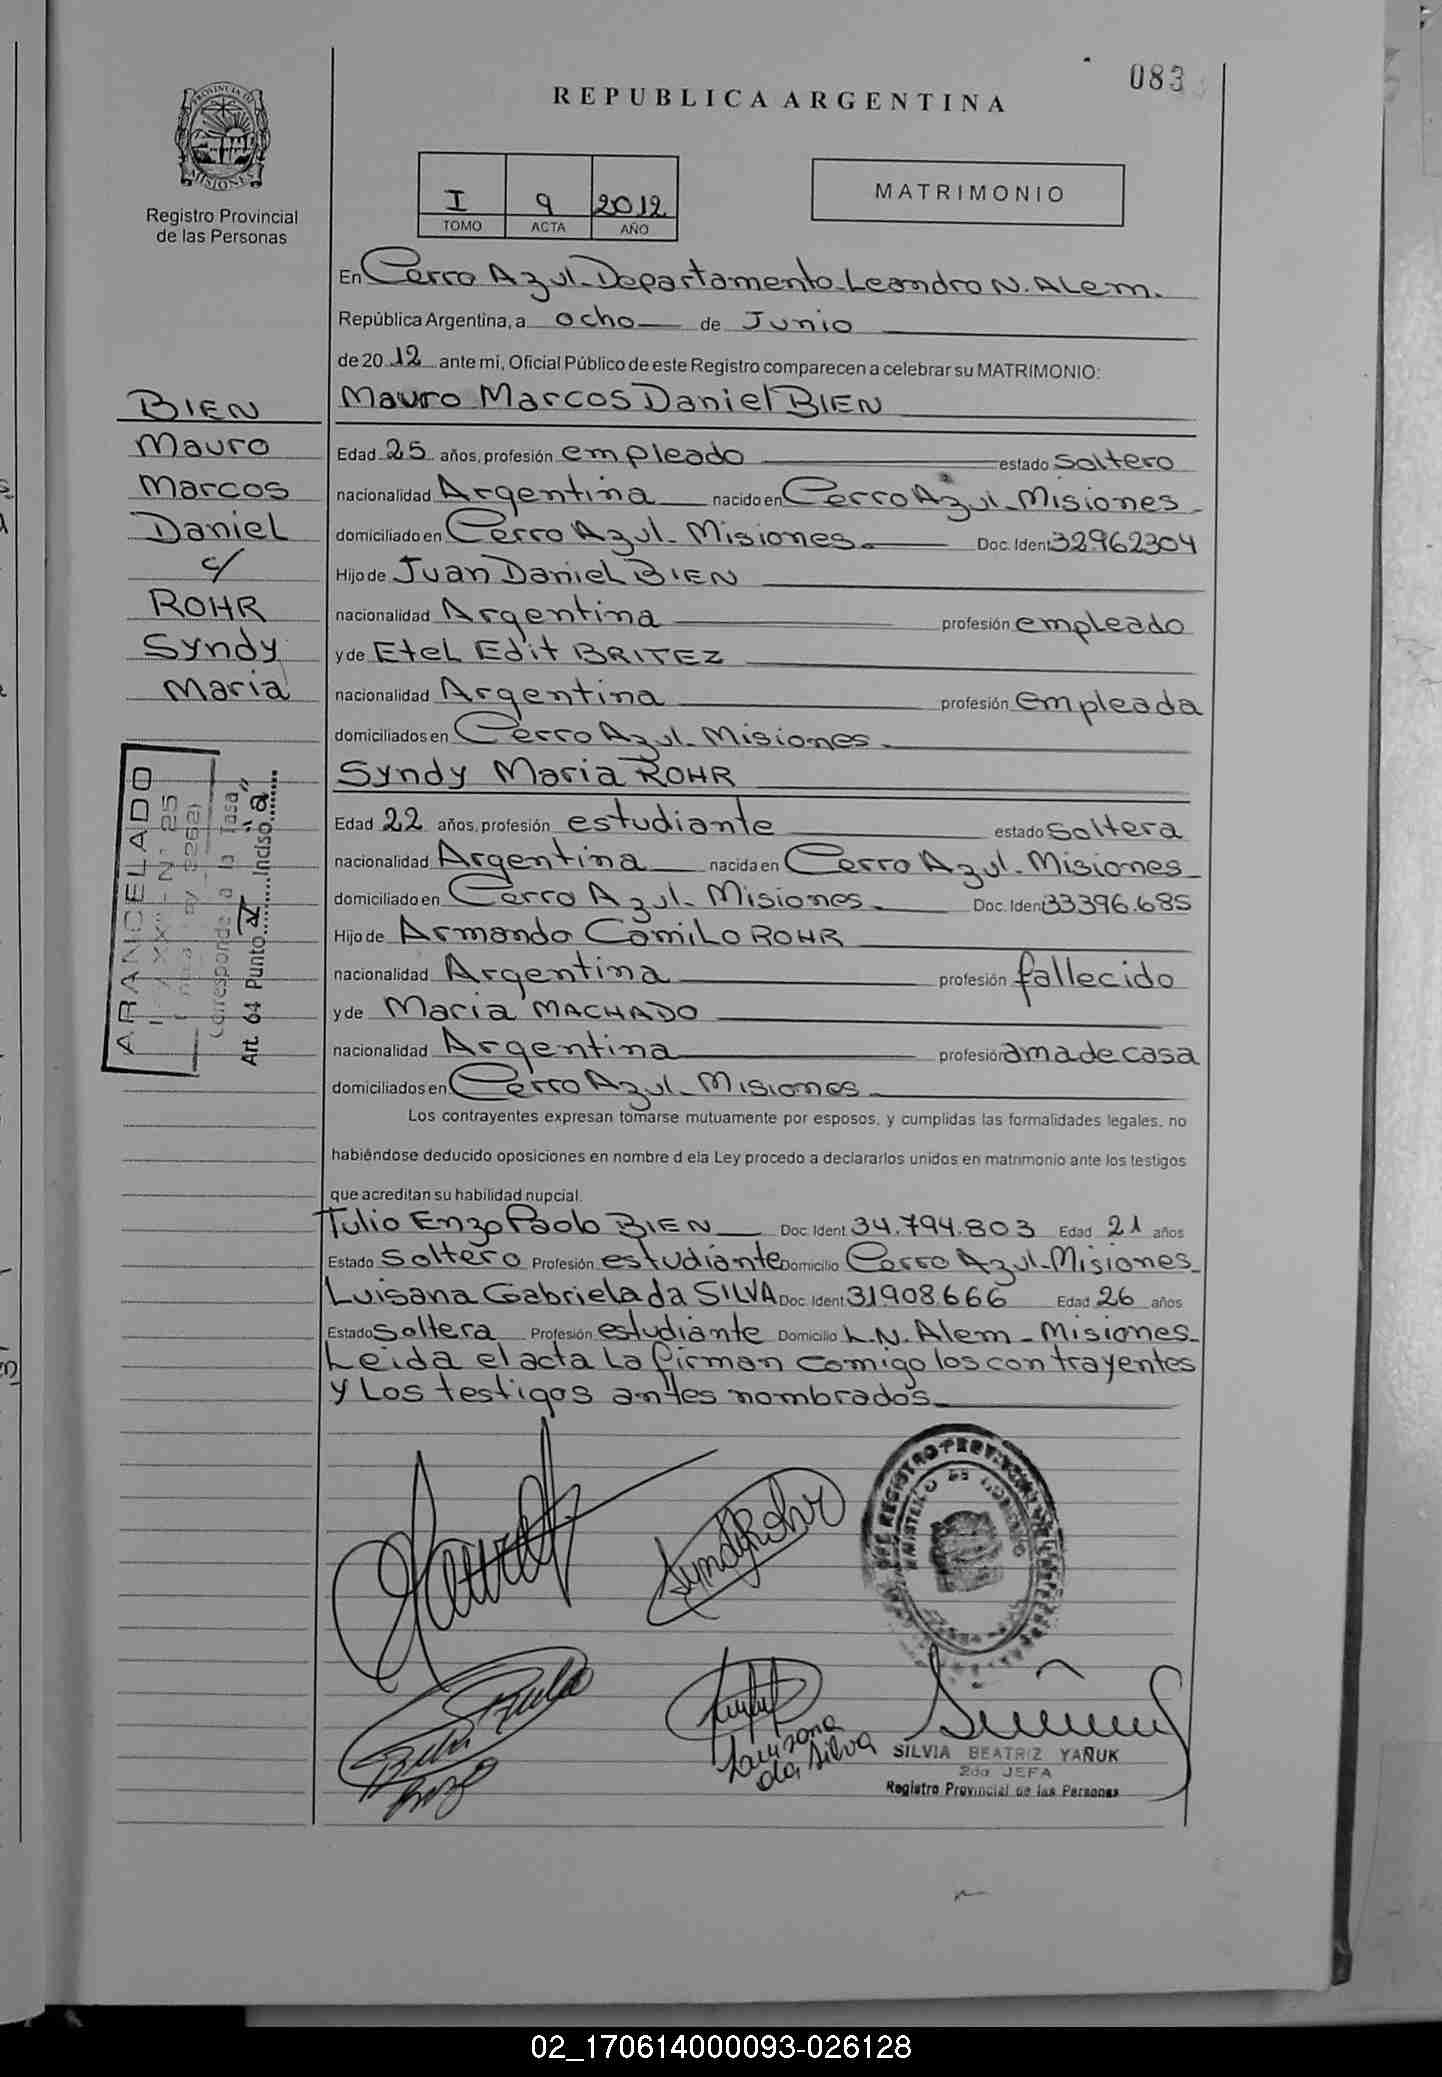 083
REPUBLICA ARGENTINA
PROVINCIA DE
MISIONES
Registro Provincial
de las Personas
I 9 2012
TOMO ACTA AÑO
MATRIMONIO
En Cerro Azul. Departamento Leandro N. Alem.
República Argentina, a ocho de Junio
de 2012 ante mi, Oficial Público de este Registro comparecen a celebrar su MATRIMONIO:
BIEN
Mauro
Marcos
Daniel
c/
ROHR
Syndy
Maria
Mauro Marcos Daniel BIEN
Edad 25 años, profesión empleado estado soltero
nacionalidad Argentina nacido en Cerro Azul. Misiones
domiciliado en Cerro Azul. Misiones. Doc. Ident 32962304
Hijo de Juan Daniel BIEN
nacionalidad Argentina profesión empleado
y de Etel Edit BRITEZ
nacionalidad Argentina profesión empleada
domiciliados en Cerro Azul. Misiones.
Syndy Maria ROHR
Edad 22 años, profesión estudiante estado soltera
nacionalidad Argentina nacida en Cerro Azul. Misiones
domiciliado en Cerro Azul. Misiones. Doc. Iden 33396.685
Hijo de Armando Camilo ROHR
nacionalidad Argentina profesión fallecido
y de Maria MACHADO
nacionalidad Argentina profesión ama de casa
domiciliados en Cerro Azul. Misiones.
ARANCELADO
Corresponde a la Tasa
Art. 64 Punto IV Inciso "a"
Los contrayentes expresan tomarse mutuamente por esposos, y cumplidas las formalidades legales, no
habiéndose deducido oposiciones en nombre d ela Ley procedo a declararlos unidos en matrimonio ante los testigos
que acreditan su habilidad nupcial.
Tulio Enzo Paolo BIEN Doc. Ident 34.794.803 Edad 21 años
Estado soltero Profesión estudiante Domicilio Cerro Azul-Misiones
Luisana Gabriela da SILVA Doc. Ident 31908.666 Edad 26 años
Estado soltera Profesión estudiante Domicilio L.N. Alem - Misiones
Leida el acta la firman comigo los contrayentes
y los testigos antes nombrados.
Syndy Rohr
Luisana
da Silva
SILVIA BEATRIZ YAÑUK
2da JEFA
Registro Provincial de las Personas
02_170614000093-026128